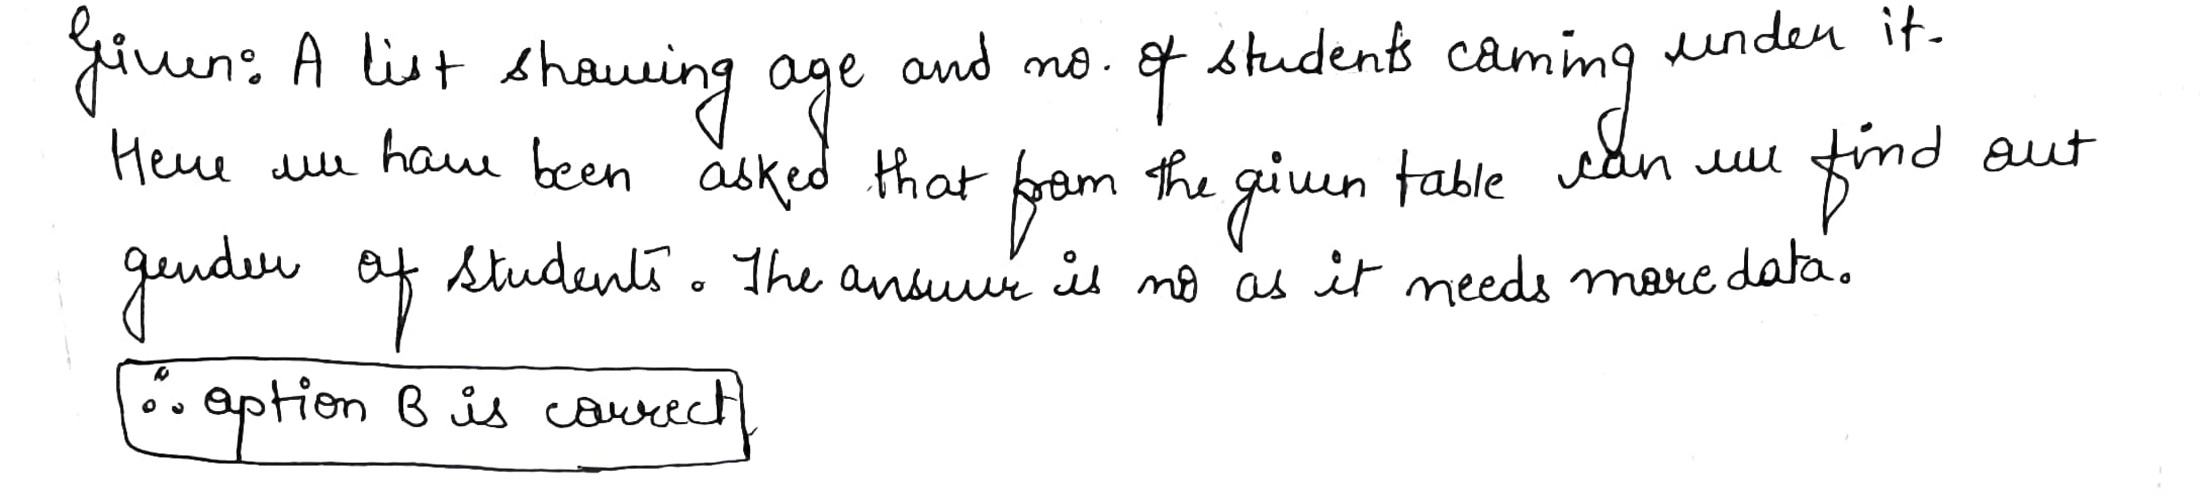 Given: A list showing age and no. of students coming under it.
Here we have been asked that from the given table can we find out
gender of students. The answer is no as it needs more data.
∴ option B is correct